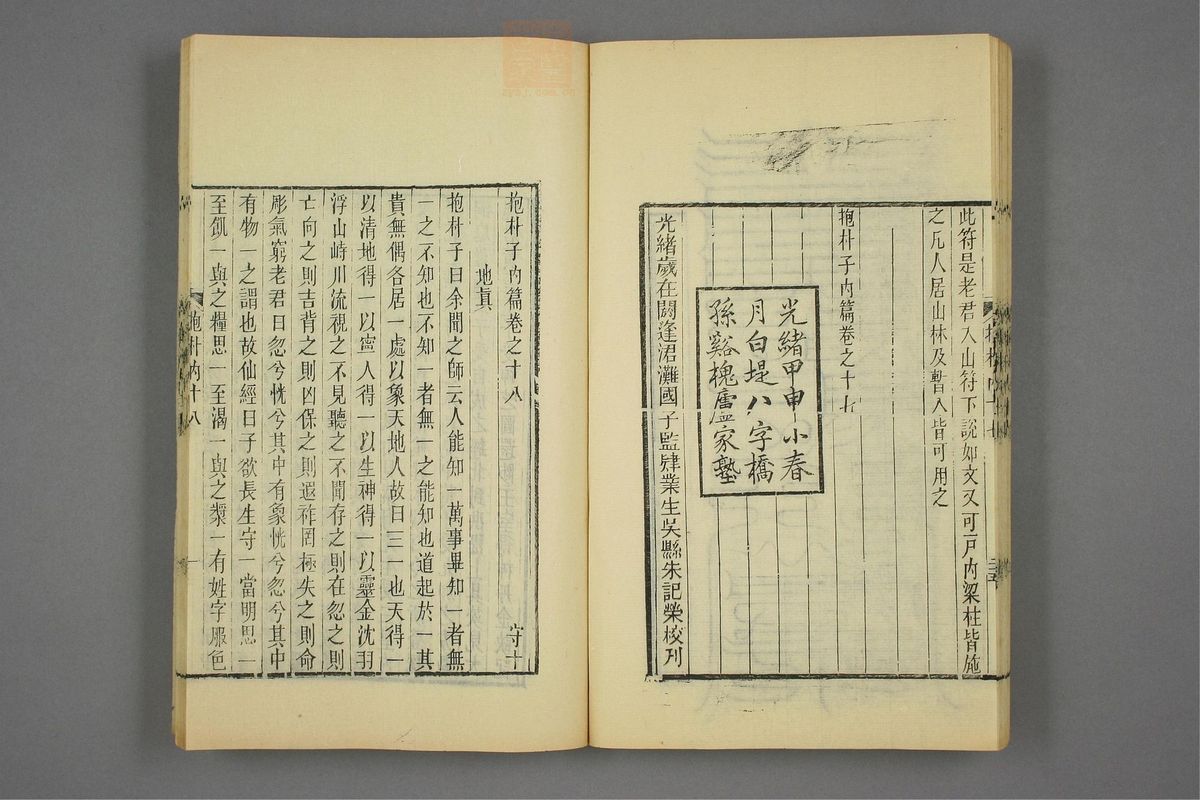 此符是老君入山符下說如文又可戶內梁柱皆施
之凡人居山林及暫入皆可用之
抱朴子內篇卷之十七
光緒甲申小春
月白堤八字橋
孫谿槐廬家塾
光緒歲在閼逢涒灘國子監肄業生吳縣朱記榮校刊
抱朴子內篇卷之十八
守十
地眞
抱朴子曰余聞之師云人能知一萬事畢知一者無
一之不知也不知一者無一之能知也道起於一其
貴無偶各居一處以象天地人故曰三一也天得一
以清地得一以寍人得一以生神得一以靈金沈羽
浮山峙川流視之不見聽之不聞存之則在忽之則
亡向之則吉背之則凶保之則遐祚罔極失之則命
彫氣窮老君曰忽兮恍兮其中有象恍兮忽兮其中
有物一之謂也故仙經曰子欲長生守一當明思一
至飢一與之糧思一至渴一與之漿一有姓字服色
抱朴內十八
一